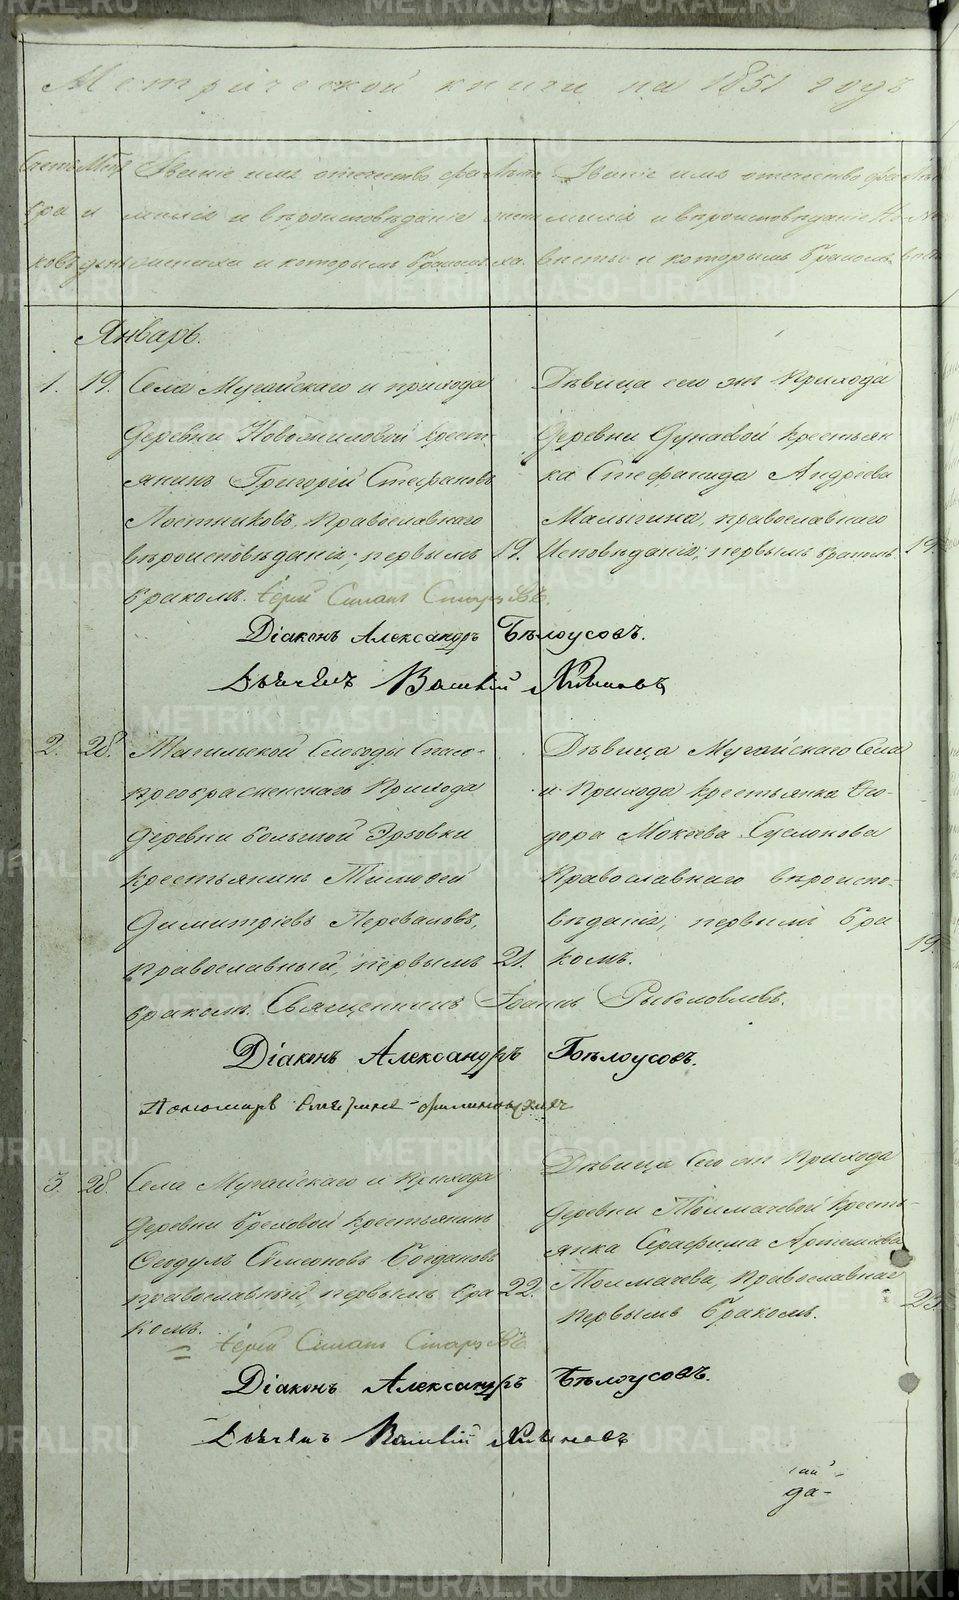 Метрической книги на 1851 годъ
Счетъ бра ковъ
Мцъ и день
Званіе имя отечество фа милія и вѣроисповѣданіе жениха и которымъ бракомъ
Лѣта жених ха.
Званіе имя отечество фа милія и вѣроисповѣданіе Не вѣсты и которымъ бракомъ
Январь.
1. 19.
Села Мугайскаго и прихода
деревни Новожиловой крест
янинъ Григорій Стефановъ
Постниковъ, Православнаго
вѣроисповѣданія; первымъ 19.
бракомъ.
Дѣвица сего же Прихода
деревни Дунаевой крестьян
ка Стефанида Андрѣева
Малыгина, православнаго
Исповѣданія; первымъ бракомъ 19.
Іерей Симонъ
Діаконъ Александръ Бѣлоусовъ.
Дьячекъ Василій
2. 28.
Тагильской Слободы Спасо-
преображенскаго Прихода
деревни большой Эрзовки
крестьянинъ Тимофей
Димитріевъ Переваловъ,
православный, первымъ 21.
бракомъ.
Дѣвица Мугайскаго Села
и Прихода крестьянка Ѳео-
дора Мокѣева Суслонова
Православнаго вѣроиспо-
вѣданія, первымъ бра
комъ. 19.
Священникъ Іоаннъ Рыболовлевъ.
Діаконъ Александръ Бѣлоусовъ.
Пономарь
3. 28.
Села Мугайскаго и Прихода
деревни Бреховой крестьянинъ
Ѳеодулъ Симеоновъ Богдановъ
православный, первымъ бра 22.
комъ.
Дѣвица Сего же Прихода
деревни Толмачевой кресть-
янка Серафима Артемьева
Толмачева, Православнаго
первымъ бракомъ. 23.
Іерей Симонъ
Діаконъ Александръ Бѣлоусовъ.
Дьячекъ Василій
да-
METRIKI.GASO-URAL.RU